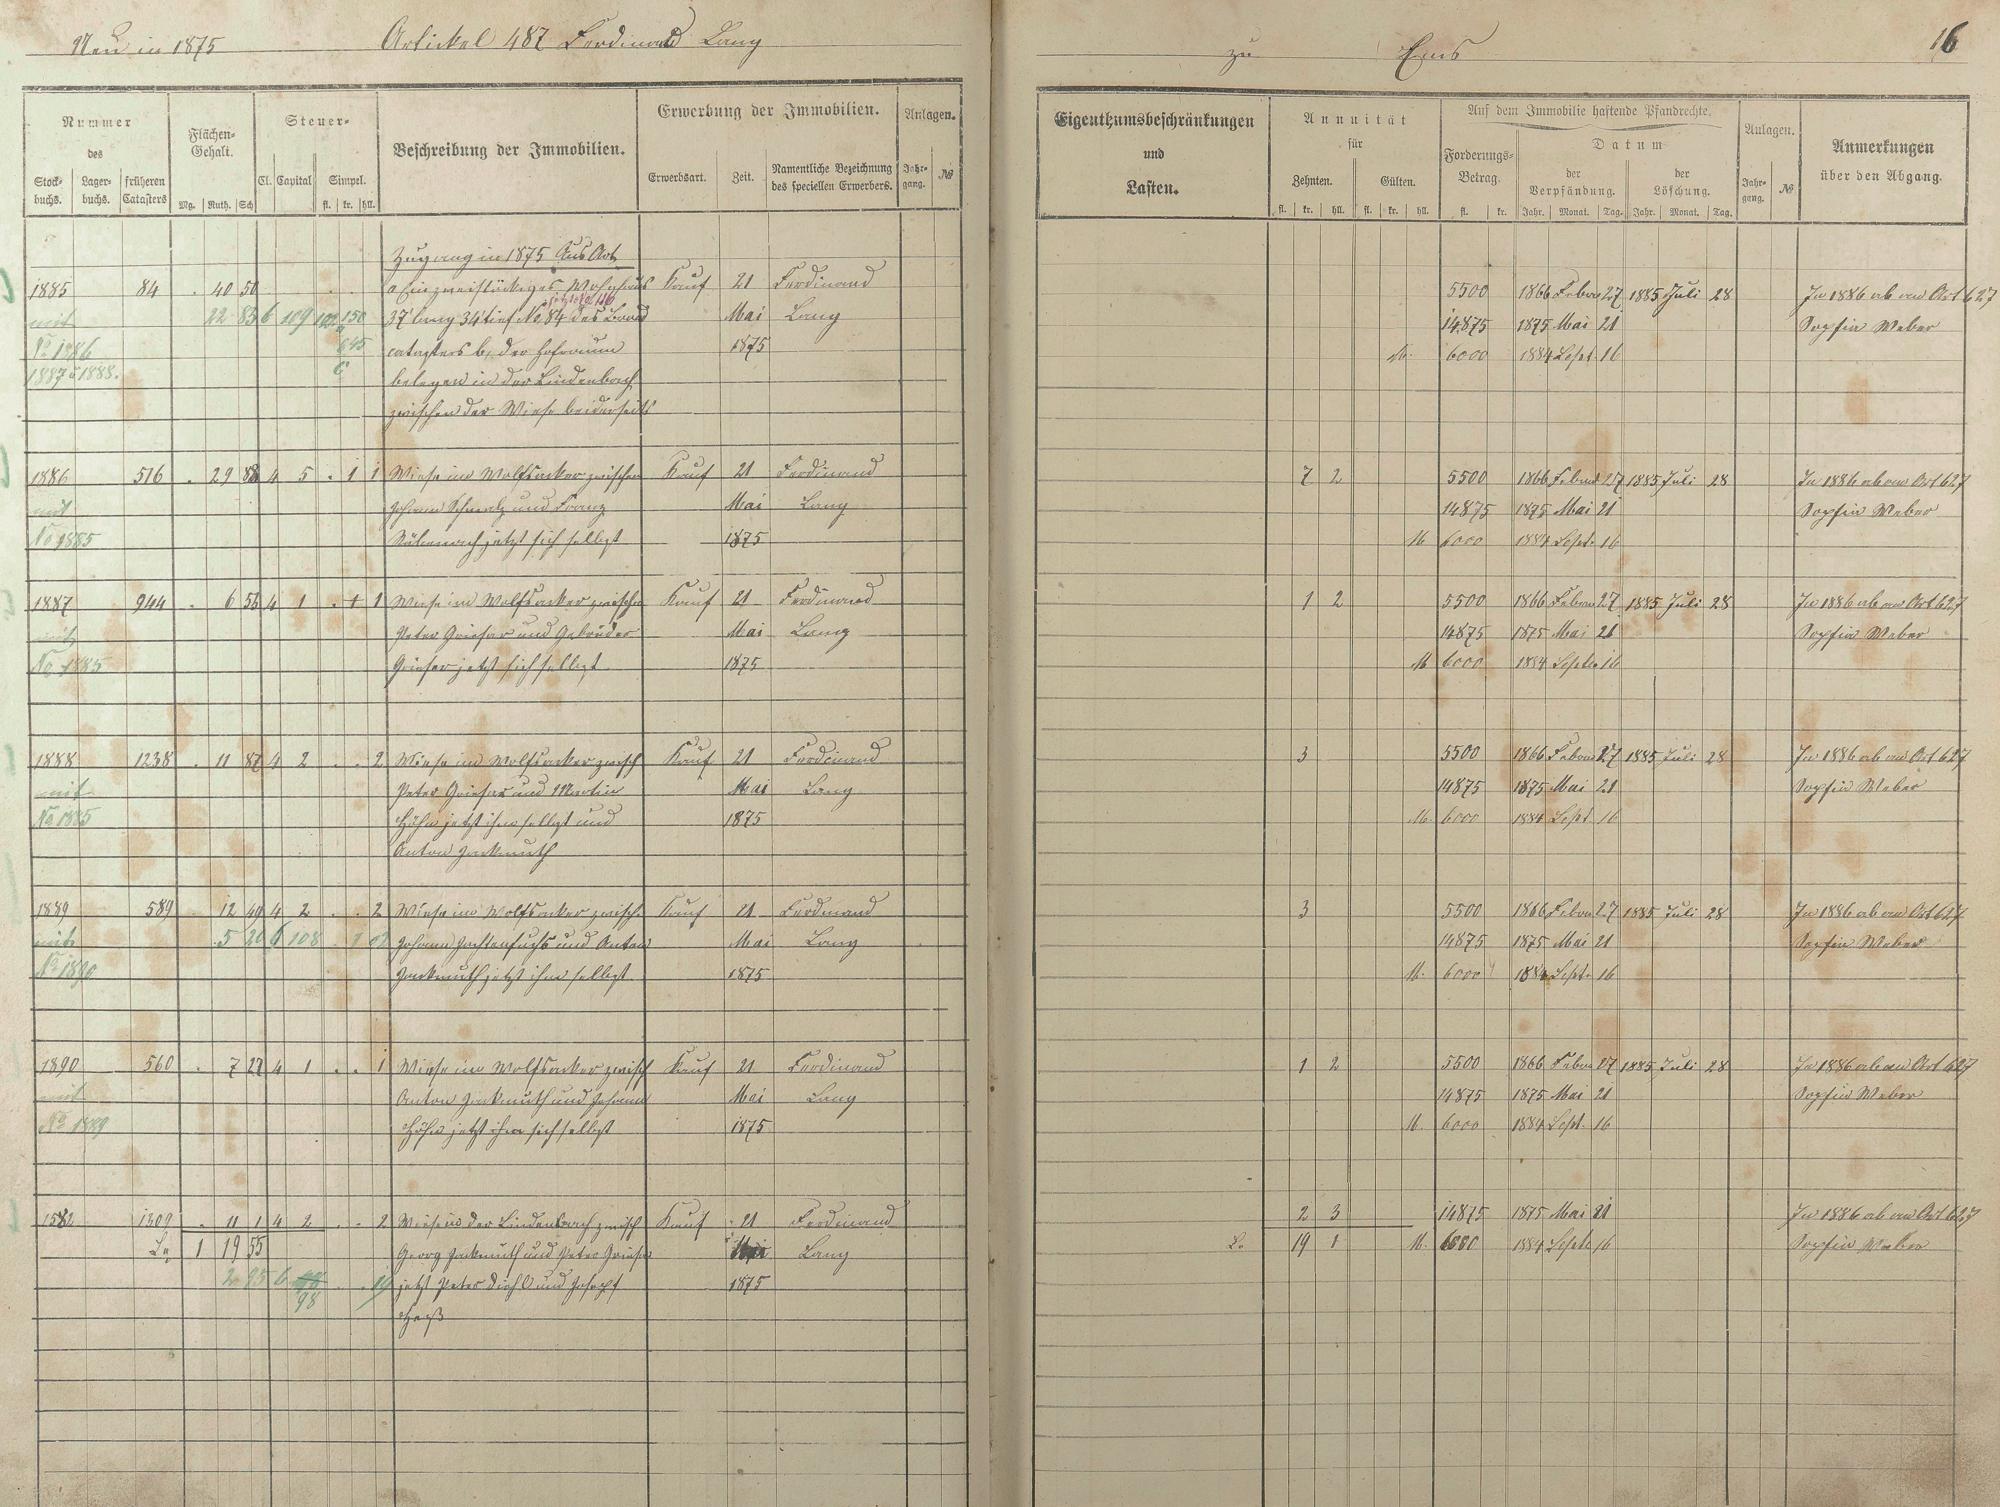 Neu in 1875 Artickel 487 Ferdinand Lang
zu Ems 16
Nummer des
Stockbuchs. Lagerbuchs. früheren Catasters
Flächen-Gehalt.
Mg. Ruth. Sch
Steuer-
Cl. Capital Simpel.
fl. kr. hll.
Beschreibung der Immobilien.
Erwerbung der Immobilien.
Erwerbsart. Zeit. Namentliche Bezeichnung des speciellen Erwerbers.
Anlagen.
Jahrgang. №
Eigenthumsbeschränkungen
und
Lasten.
Annuität
für
Zehnten. Gülten.
fl. kr. hll. fl. kr. hll.
Auf dem Immobilie haftende Pfandrechte.
Forderungs-Betrag.
fl. kr.
Datum
der Verpfändung. der Löschung.
Jahr. Monat. Tag. Jahr. Monat. Tag.
Anlagen.
Jahrgang. №
Anmerkungen
über den Abgang.
Zugang in 1875 Aus Art
1885 84 . 40 50 a Ein zweistöckiges Wohnhaus Kauf 21 Ferdinand
mit 22 83 6 109 37' lang 34' tief No 84 des Brand Mai Lang
No 1886 catasters b, der Hofraum 1875
1887 u 1888. belegen in der Lindenbach
zwischen der Wiese beiderseits
5500 1866 Febru 27 1885 Juli 28 In 1886 ab an Art 627
14875 1875 Mai 21 Sophia Weber
M. 6000 1884 Sept. 16
1886 516 . 29 88 4 5 . 1 1 Wiese im Wolfsacker zwischen Kauf 21 Ferdinand
mit Johann Schmalz und Franz Mai Lang
No 1885 jetzt sich selbst 1875
7 2 5500 1866 Febru 27 1885 Juli 28 In 1886 ab an Art 627
14875 1875 Mai 21 Sophia Weber
M 6000 1884 Sept. 16
1887 944 . 6 56 4 1 . 1 1 Wiese im Wolfsacker zwischen Kauf 21 Ferdinand
mit Peter Grieser und Gebrüder Mai Lang
No 1885 Grieser jetzt sich selbst 1875
1 2 5500 1866 Febru 27 1885 Juli 28 In 1886 ab an Art 627
14875 1875 Mai 21 Sophia Weber
M 6000 1884 Septe 16
1888 1238 . 11 87 4 2 . . 2 Wiese im Wolfsacker zwisch Kauf 21 Ferdinand
mit Peter Grieser und Martin Mai Lang
No 1885 Höhn jetzt ihm selbst und 1875
Anton Jackmuth
3 5500 1866 Febru 27 1885 Juli 28 In 1886 ab an Art 627
14875 1875 Mai 21 Sophia Weber
M. 6000 1884 Sept 16
1889 589 . 12 49 4 2 . . 2 Wiese im Wolfsacker zwisch. Kauf 21 Ferdinand
mit 5 20 6 108 Johann und Anton Mai Lang
No 1890 Jackmuth jetzt ihm selbst 1875
3 5500 1866 Febru 27 1885 Juli 28 In 1886 ab an Art 627
14875 1875 Mai 21 Sophia Weber
M. 6000 1884 Sept. 16
1890 560 . 7 27 4 1 . . 1 Wiese im Wolfsacker zwisch Kauf 21 Ferdinand
mit Anton Jackmuth und Johann Mai Lang
No 1889 Höhn jetzt ihm sich selbst 1875
1 2 5500 1866 Febru 27 1885 Juli 28 In 1886 ab an Art 627
14875 1875 Mai 21 Sophia Weber
M. 6000 1884 Sept. 16
1582 1309 . 11 1 4 2 . . 2 Wiese in der Lindenbach zwisch Kauf 21 Ferdinand
1 19 55 Georg Jackmuth und Peter Grieser Mai Lang
2 95 6 98 jetzt Peter Diehl und Joseph 1875
2 3 14875 1875 Mai 21 In 1886 ab an Art 627
19 1 M. 6000 1884 Septe 16 Sophia Weber